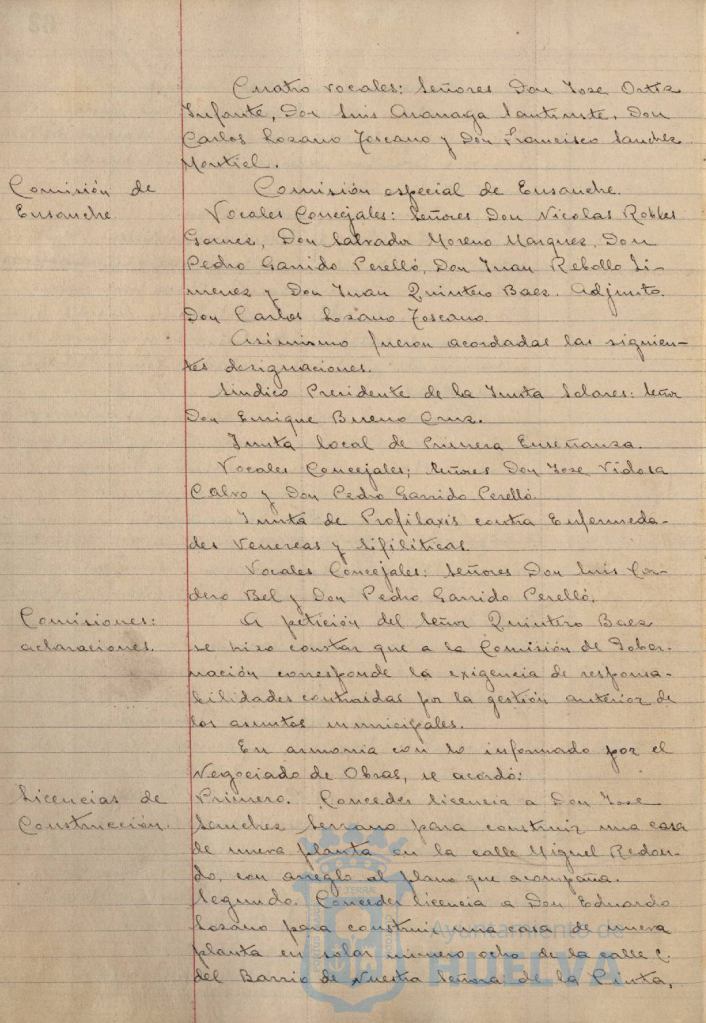 Cuatro vocales: Señores Don Jose Ortiz
Infante, Don Luis Aranaga Santiuste, Don
Carlos Lozano Toscano y Don Francisco Sanchez
Montiel.
Comisión de
Ensanche
Comisión especial de Ensanche.
Vocales Concejales: Señores Don Nicolas Robles
Gomez, Don Salvador Moreno Marquez, Don
Pedro Garrido Perelló, Don Juan Rebollo Ji-
menez y Don Juan Quintero Baez. Adjunto.
Don Carlos Lozano Toscano.
Asimismo fueron acordadas las siguien-
tes designaciones.
Sindico Presidente de la Junta Solares: Señor
Don Enrique Bueno Cruz.
Junta local de Primera Enseñanza.
Vocales Concejales; Señores Don Jose Vidosa
Calvo y Don Pedro Garrido Perelló.
Junta de Profilaxis contra Enfermeda-
des Venereas y Sifiliticas.
Vocales Concejales: Señores Don Luis Cor-
dero Bel y Don Pedro Garrido Perelló.
Comisiones:
aclaraciones.
A petición del Señor Quintero Baez
se hizo constar que a la Comisión de Gober-
nación corresponde la exigencia de responsa-
bilidades contraidas por la gestión anterior de
los asuntos municipales.
En armonia con lo informado por el
Negociado de Obras, se acordó:
Licencias de
Construcción.
Primero. Conceder licencia a Don Jose
Sanchez Serrano para construir una casa
de nueva planta en la calle Miguel Redon-
do, con arreglo al plano que acompaña.
Segundo. Conceder licencia a Don Eduardo
Lozano para construir una casa de nueva
planta en solar numero ocho de la calle C.
del Barrio de Nuestra Señora de la Cinta,
Ayuntamiento de
HUELVA